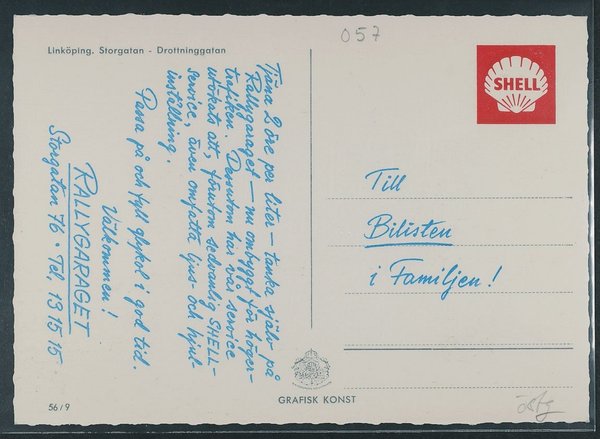 057
Linköping. Storgatan - Drottninggatan
SHELL
Tjäna 2 öre per liter - tanka själv på
Rallygaraget - nu ombyggt för höger-
trafiken. Dessutom har vår service
utökats att, förutom sedvanlig SHELL-
service, även omfatta ljus- och hjul-
inställning.
Passa på och fyll glykol i god tid.
Välkommen!
RALLYGARAGET
Storgatan 76 · Tel. 131515
Till
Bilisten
i Familjen!
56/9
GRAFISK KONST